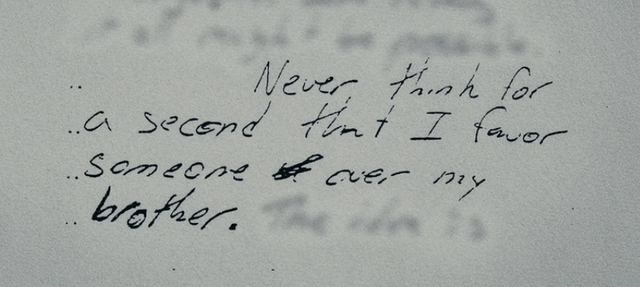 Never think for
a second that I favor
someone over my
brother. The idea is